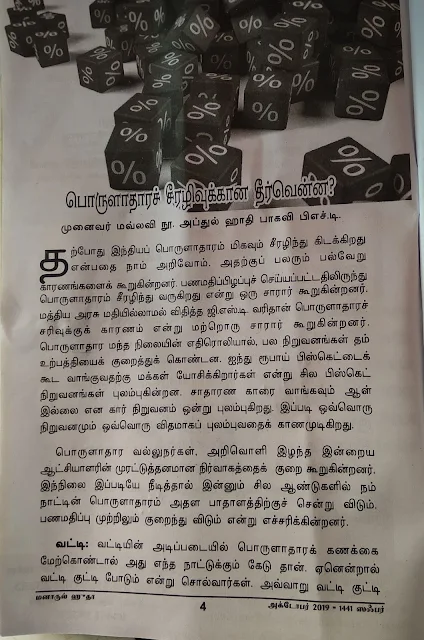 % % % % % % % % % % % % % % % % %
பொருளாதாரச் சீரழிவுக்கான தீர்வென்ன?
முனைவர் மவ்லவி நூ. அப்துல் ஹாதி பாகவி பிஎச்.டி.
தற்போது இந்தியப் பொருளாதாரம் மிகவும் சீரழிந்து கிடக்கிறது
என்பதை நாம் அறிவோம். அதற்குப் பலரும் பல்வேறு
காரணங்களைக் கூறுகின்றனர். பணமதிப்பிழப்புச் செய்யப்பட்டதிலிருந்து
பொருளாதாரம் சீரழிந்து வருகிறது என்று ஒரு சாரார் கூறுகின்றனர்.
மத்திய அரசு மதியில்லாமல் விதித்த ஜி.எஸ்.டி. வரிதான் பொருளாதாரச்
சரிவுக்குக் காரணம் என்று மற்றொரு சாரார் கூறுகின்றனர்.
பொருளாதார மந்த நிலையின் எதிரொலியால், பல நிறுவனங்கள் தம்
உற்பத்தியைக் குறைத்துக் கொண்டன. ஐந்து ரூபாய் பிஸ்கெட்டைக்
கூட வாங்குவதற்கு மக்கள் யோசிக்கிறார்கள் என்று சில பிஸ்கெட்
நிறுவனங்கள் புலம்புகின்றன. சாதாரண காரை வாங்கவும் ஆள்
இல்லை என கார் நிறுவனம் ஒன்று புலம்புகிறது. இப்படி ஒவ்வொரு
நிறுவனமும் ஒவ்வொரு விதமாகப் புலம்புவதைக் காணமுடிகிறது.
பொருளாதார வல்லுநர்கள், அறிவொளி இழந்த இன்றைய
ஆட்சியாளரின் முரட்டுத்தனமான நிர்வாகத்தைக் குறை கூறுகின்றனர்.
இந்நிலை இப்படியே நீடித்தால் இன்னும் சில ஆண்டுகளில் நம்
நாட்டின் பொருளாதாரம் அதள பாதாளத்திற்குச் சென்று விடும்.
பணமதிப்பு முற்றிலும் குறைந்து விடும் என்று எச்சரிக்கின்றனர்.
வட்டி: வட்டியின் அடிப்படையில் பொருளாதாரக் கணக்கை
மேற்கொண்டால் அது எந்த நாட்டுக்கும் கேடு தான். ஏனென்றால்
வட்டி குட்டி போடும் என்று சொல்வார்கள். அவ்வாறு வட்டி குட்டி
மனாருள் ஹுதா 4 அக்டோபர் 2019 • 1441 ஸஃபர்